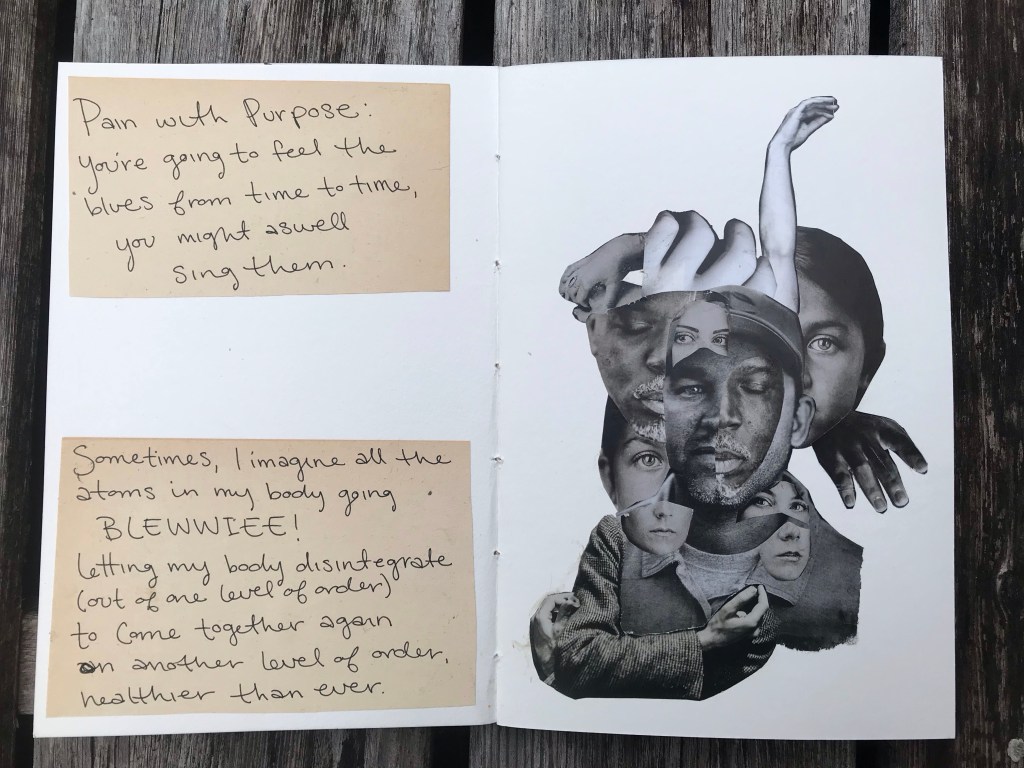 Pain with Purpose:
You're going to feel the
blues from time to time,
you might aswell
sing them.
Sometimes, I imagine all the
atoms in my body going
BLEWWIEE!
letting my body disintegrate
(out of one level of order)
to come together again
on another level of order,
healthier than ever.